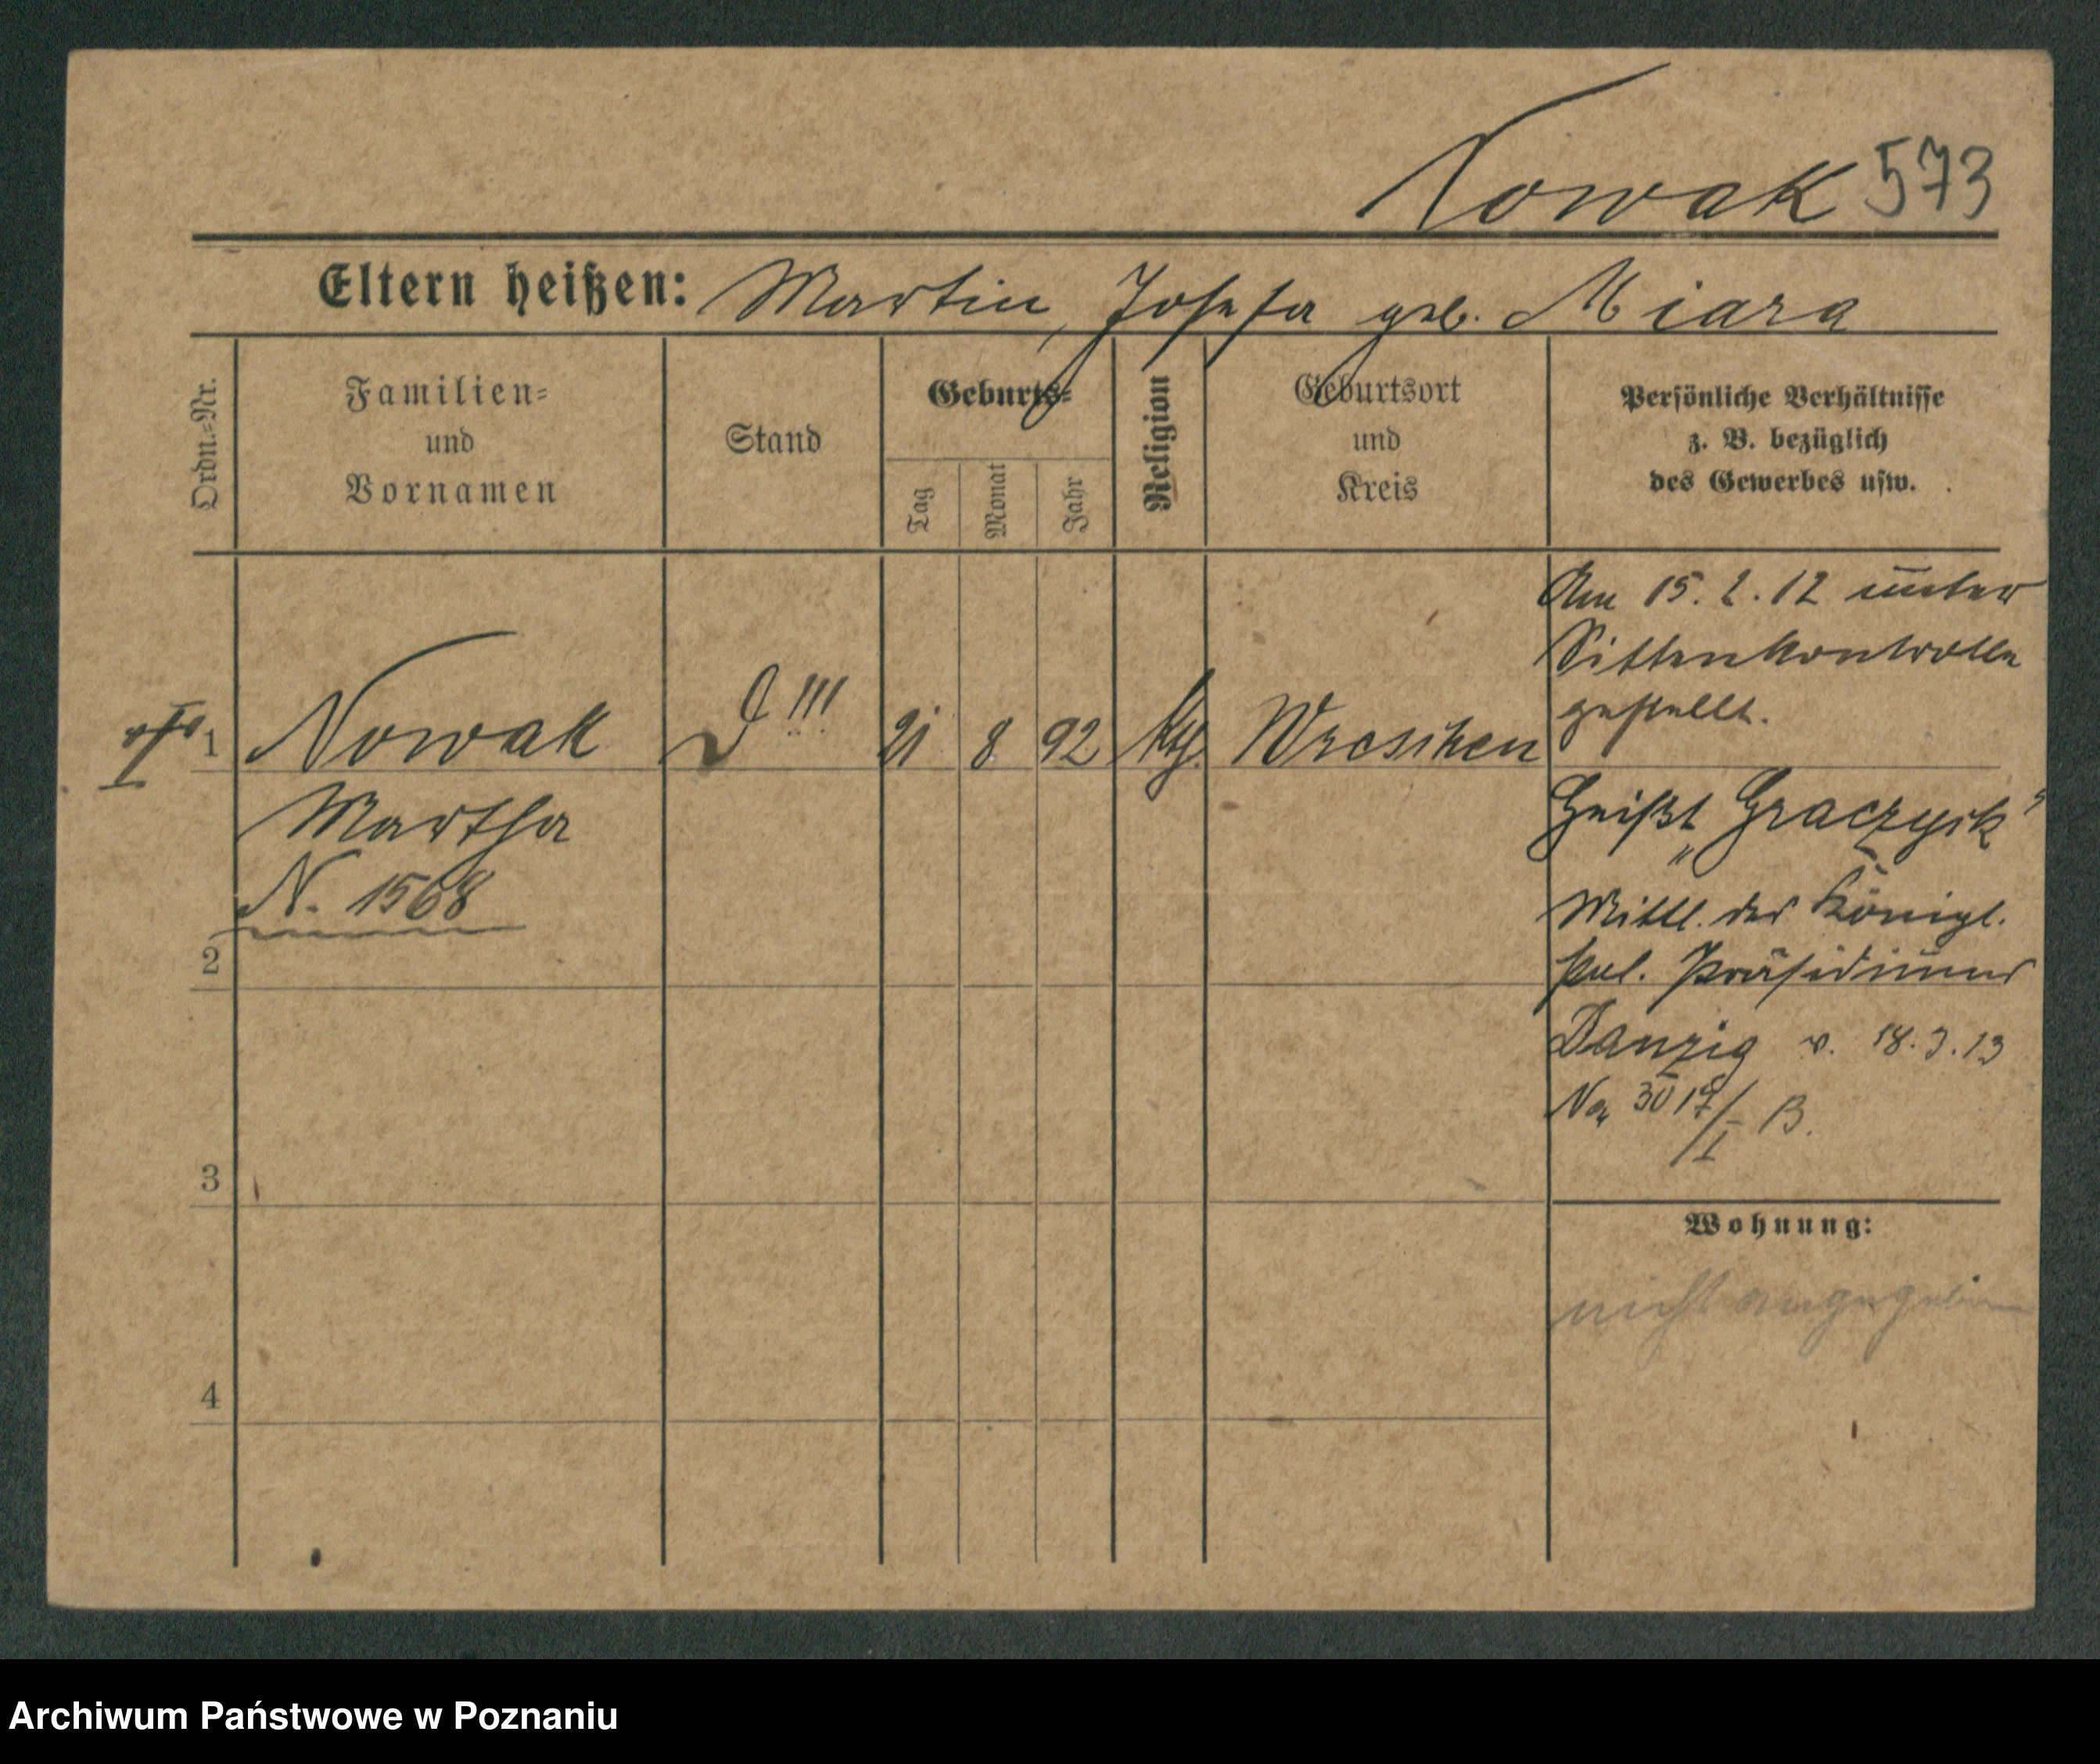 Nowak 573
Eltern heißen: Martin, Josefa geb. Miara
Ordn.-Nr.
Familien-
und
Vornamen
Stand
Geburts-
Tag
Monat
Jahr
Religion
Geburtsort
und
Kreis
Persönliche Verhältnisse
z. B. bezüglich
des Gewerbes usw.
1
Nowak
Martha
N. 1568
D !!!
21 8 92 Kth. Wreschen
Am 15. 2. 12 unter
Sittenkontrolle
gestellt.
Heißt „Graczyck"
Mittl. des Königl.
Pol. Präsidiums
Danzig v. 18. 3. 13
B.
2
3
4
Wohnung:
nicht angegeben
Archiwum Państwowe w Poznaniu